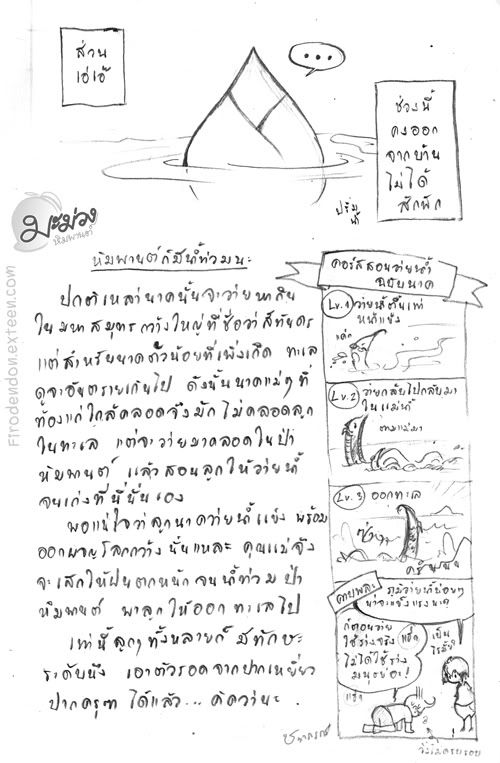 ส่วน
เอ่เอ้
...
ช่วงนี้
คงออก
จากบ้าน
ไม่ได้
สักพัก
ปริ่ม
น้ำ
มะม่วง
หิมพานต์
Firodendon.exteen.com
หิมพานต์ก็มีน้ำท่วมนะ
ปกติเหล่านาคนั้นจะว่ายหากิน
ในมหาสมุทรกว้างใหญ่ที่ชื่อว่าสีทันดร
แต่สำหรับนาคตัวน้อยที่เพิ่งเกิด ทะเล
ดูจะอันตรายเกินไป ดังนั้นนาคแม่ๆที่
ท้องแก่ใกล้คลอดจึงมักไม่คลอดลูก
ในทะเล แต่จะว่ายมาคลอดในป่า
หิมพานต์ แล้วสอนลูกให้ว่ายน้ำ
จนเก่งที่นี่นั่นเอง
พอแน่ใจว่าลูกนาคว่ายน้ำแข็ง พร้อม
ออกผจญโลกกว้างนั่นแหละ คุณแม่จึง
จะเสกให้ฝนตกหนักจนน้ำท่วมป่า
หิมพานต์ พาลูกให้ออกทะเลไป
เท่านี้ลูกๆทั้งหลายก็มีทักษะ
ระดับนึง เอาตัวรอดจากปากเหยี่ยว
ปากครุฑ ได้แล้ว... คิดว่านะ
คอร์สสอนว่ายน้ำ
ฉบับนาค
Lv.1 ว่ายน้ำตื้นแค่
หน้าแข้ง
Lv.2 ว่ายกลับไปกลับมา
ในแม่น้ำ
ตามแม่มา
Lv.3 ออกทะเล
ซ่า
ภูมิว่ายน้ำบ่อยๆ
น่าจะแข็งแรงนะ
ก็ตอนว่าย
ใช้ร่างจริง
ไม่ได้ใช้ร่าง
มนุษย์อ่ะ!
เป็น
ไรมั้ย?